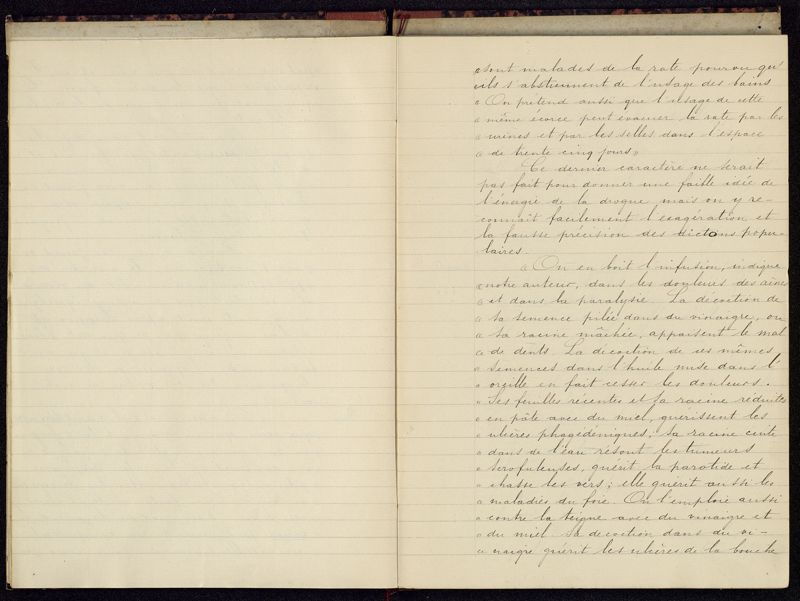 « sont malades de la rate pourvu qu'
« ils s'abstiennent de l'usage des bains
« On prétend aussi que l'usage de cette
« même écorce peut évacuer la rate par les
« urines et par les selles dans l'espace
« de trente cinq jours »
Ce dernier caractère ne serait
pas fait pour donner une faible idée de
l'énergie de la drogue, mais on y re-
connaît facilement l'exagération et
la fausse précision des dictons popu-
laires.
« On en boit l'infusion, indique
« notre auteur, dans les douleurs des aines
« et dans la paralysie. La décoction de
« sa semence pilée dans du vinaigre, ou
« sa racine mâchée, appaisent le mal
« de dents. La décoction de ses mêmes
« semences dans l'huile mise dans l'
« oreille en fait cesser les douleurs.
« Ses feuilles récentes et sa racine réduites
« en pâte avec du miel, guérissent les
« ulcères phagédéniques; sa racine cuite
« dans de l'eau résout les tumeurs
« scrofuleuses, guérit la parotide et
« chasse les vers; elle guérit aussi les
« maladies du foie. On l'emploie aussi
« contre la teigne avec du vinaigre et
« du miel. Sa décoction dans du vi-
« naigre guérit les ulcères de la bouche